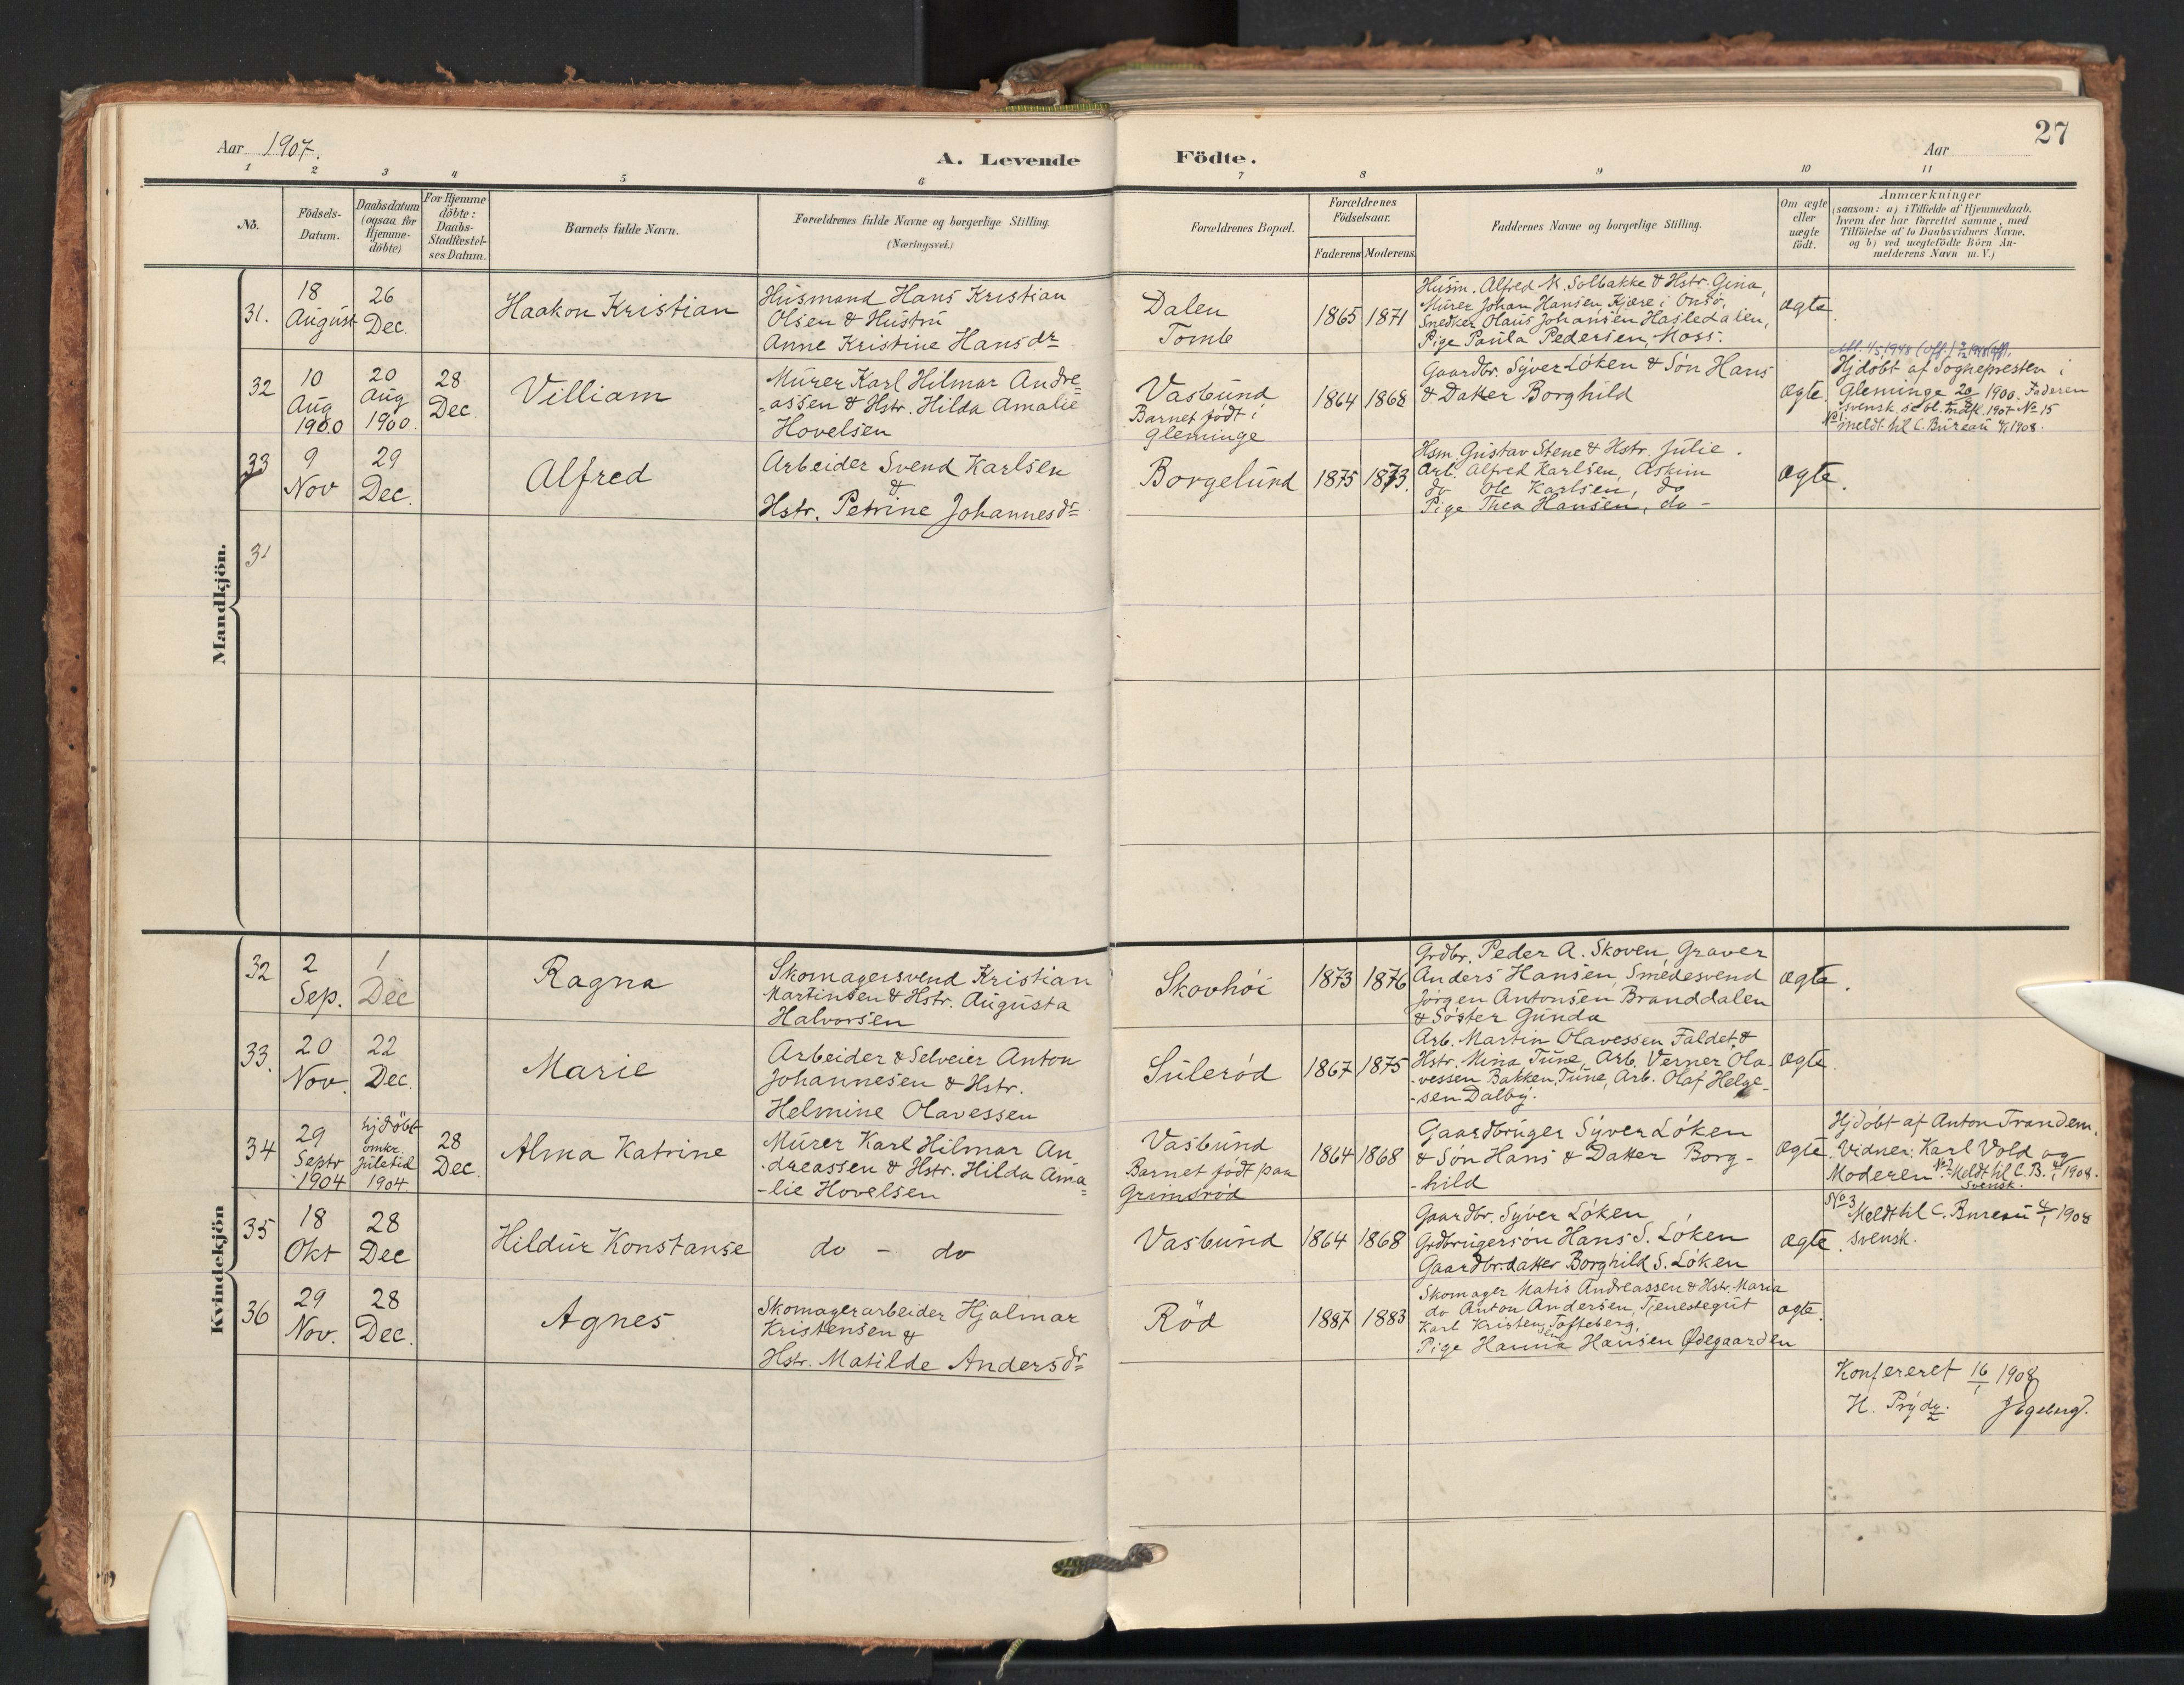 Aar 1907.
A. Levende Födte.
Aar
27
1 2 3 4 5 6 7 8 9 10 11
No.
Födsels-
Datum.
Daabsdatum
(ogsaa for
Hjemme-
döbte)
For Hjemme
döbte:
Daabs-
Stadfæstel-
ses Datum.
Barnets fulde Navn.
Forældrenes fulde Navne og borgerlige Stilling.
(Næringsvei.)
Forældrenes Bopæl.
Forældrenes
Födselsaar.
Faderens Moderens
Faddernes Navne og borgerlige Stilling.
Om ægte
eller
uægte
födt.
Anmærkninger
(saasom: a) i Tilfælde af Hjemmedaab,
hvem der har forrettet samme, med
Tilföielse af to Daabsvidners Navne,
og b) ved uegtefödte Börn An-
melderens Navn m. V.)
Mandkjön.
31.
18
August
26
Dec.
Haakon Kristian
Husmand Hans Kristian
Olsen & Hustru
Anne Kristine Hansdr
Dalen
Tomb
1865 1871
Husm. Alfred N. Solbakke & Hstr. Gina,
Murer Johan Hansen, Kjære i Onsø,
Snedker Olaus Johansen Hasledalen,
Pige Paula Pedersen, Moss.
ægte.
32
10
Aug
1900
20
Aug
1900.
28
Dec.
Villiam
Murer Karl Hilmar Andre-
-assen & Hstr. Hilda Amalie
Hovelsen
Vasbund
Barnet født i
Gleminge
1864 1868
Gaardbr. Syver Løken & Søn Hans
& Datter Borghild
ægte.
Hjdøbt af Sognepresten i
Gleminge 20/8 1900. Faderen
svensk. 1907 No 15
No 1. meldt til C. Bureau 4/1 1908.
33
9
Nov
29
Dec.
Alfred
Arbeider Svend Karlsen
&
Hstr. Petrine Johannesdr
Borgelund
1875 1873.
Hsm. Gustav Stene & Hstr. Julie.
Arb. Alfred Karlsen, Askim
do Ole Karlsen, do
Pige Thea Hansen, do -
ægte.
31
Kvindekjön
32
2
Sep.
1
Dec
Ragna
Skomagersvend Kristian
Martinsen & Hstr. Augusta
Halvorsen
Skovhøi
1873 1876
Grdbr. Peder A. Skoven, Graver
Anders Hansen, Smedesvend
Jørgen Antonsen Branddalen
& Søster Gunda
ægte.
33.
20
Nov.
22
Dec.
Marie
Arbeider & Selveier Anton
Johannesen & Hstr.
Helmine Olavessen
Sulerød
1867 1875
Arb. Martin Olavessen Faldet &
Hstr. Mina Tune, Arb. Verner Ola-
-vessen Bakken, Tune, Arb. Olaf Helge-
-sen Dalby.
ægte.
34
29
Septr
1904
hjdöbt
omkr.
juletid
1904
28
Dec.
Alma Katrine
Murer Karl Hilmar An
-dreassen & Hstr. Hilda Ama-
-lie Hovelsen
Vasbund
Barnet født paa
Grimsrød
1864 1868
Gaardbruger Syver Løken
& Søn Hans & Datter Borg-
-hild
ægte.
Hjdøbt af Anton Trandem.
Vidner: Karl Vold og
Moderen. No 2 Meldt til C. B. 4/1 1908.
svensk.
35
18
Okt
28
Dec
Hildur Konstanse
do - do
Vasbund
1864 1868
Gaardbr. Syver Løken
Grdbrugersøn Hans S. Løken
Gaardbr.datter Borghild S. Løken
ægte.
No 3 Meldt til C. Bureau 4/1 1908
svensk.
36
29
Nov.
28
Dec.
Agnes
Skomagerarbeider Hjalmar
Kristensen &
Hstr. Matilde Andersdr
Röd
1887 1883
Skomager Matis Andreassen & Hstr. Maria
do Anton Andersen, Tjenestegut
Karl Kristensen Tofteberg,
Pige Hanna Hansen Ødegaarden
ægte.
Konfereret 16/1 1908
H. Prydz.